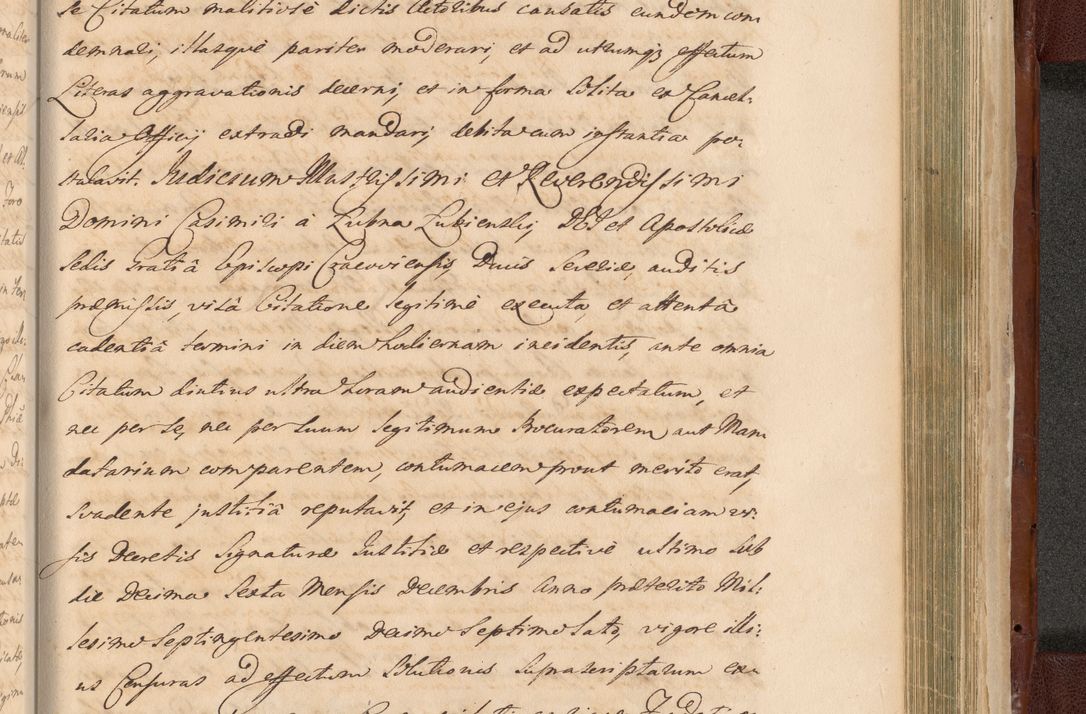 se Citatum malitiosè dictis Actoribus causatis eundem con
demnari, illasquè pariter moderari, et ad utrumq3 effectum
Literas aggravationis decerni, et in forma solita ex Cancel:
laria Officij extradi mandari, debita cum instantia po:
stulavit. Judicium Illustrissimi et Reverendissimi
Domini Casimiri à Łubna Łubienski, DEI et Apostolicæ
Sedis Gratiâ Episcopi Cracoviensis, Ducis Severiæ, auditis
præmissis, visâ Citatione legitimè executa, et attentâ
cadentiâ termini in diem hodiernam incidentis, ante omnia
Citatum diutius ultra horam audientiæ expectatum, et
nec per se, nec per suum legitimum Procuratorem aut Man
datarium comparentem, contumacem prout merito erat,
svadente justitiâ reputavit, et in ejus contumaciam vi:
sis Decretis Signaturæ Justitiæ et respectivè ultimo sub
die Decima Sexta Mensis Decembris Anno præterito Mil:
lesimo Septingentesimo Decimo Septimo lato, vigore illi:
us Censuras ad effectum solutionis suprascriptarum exe